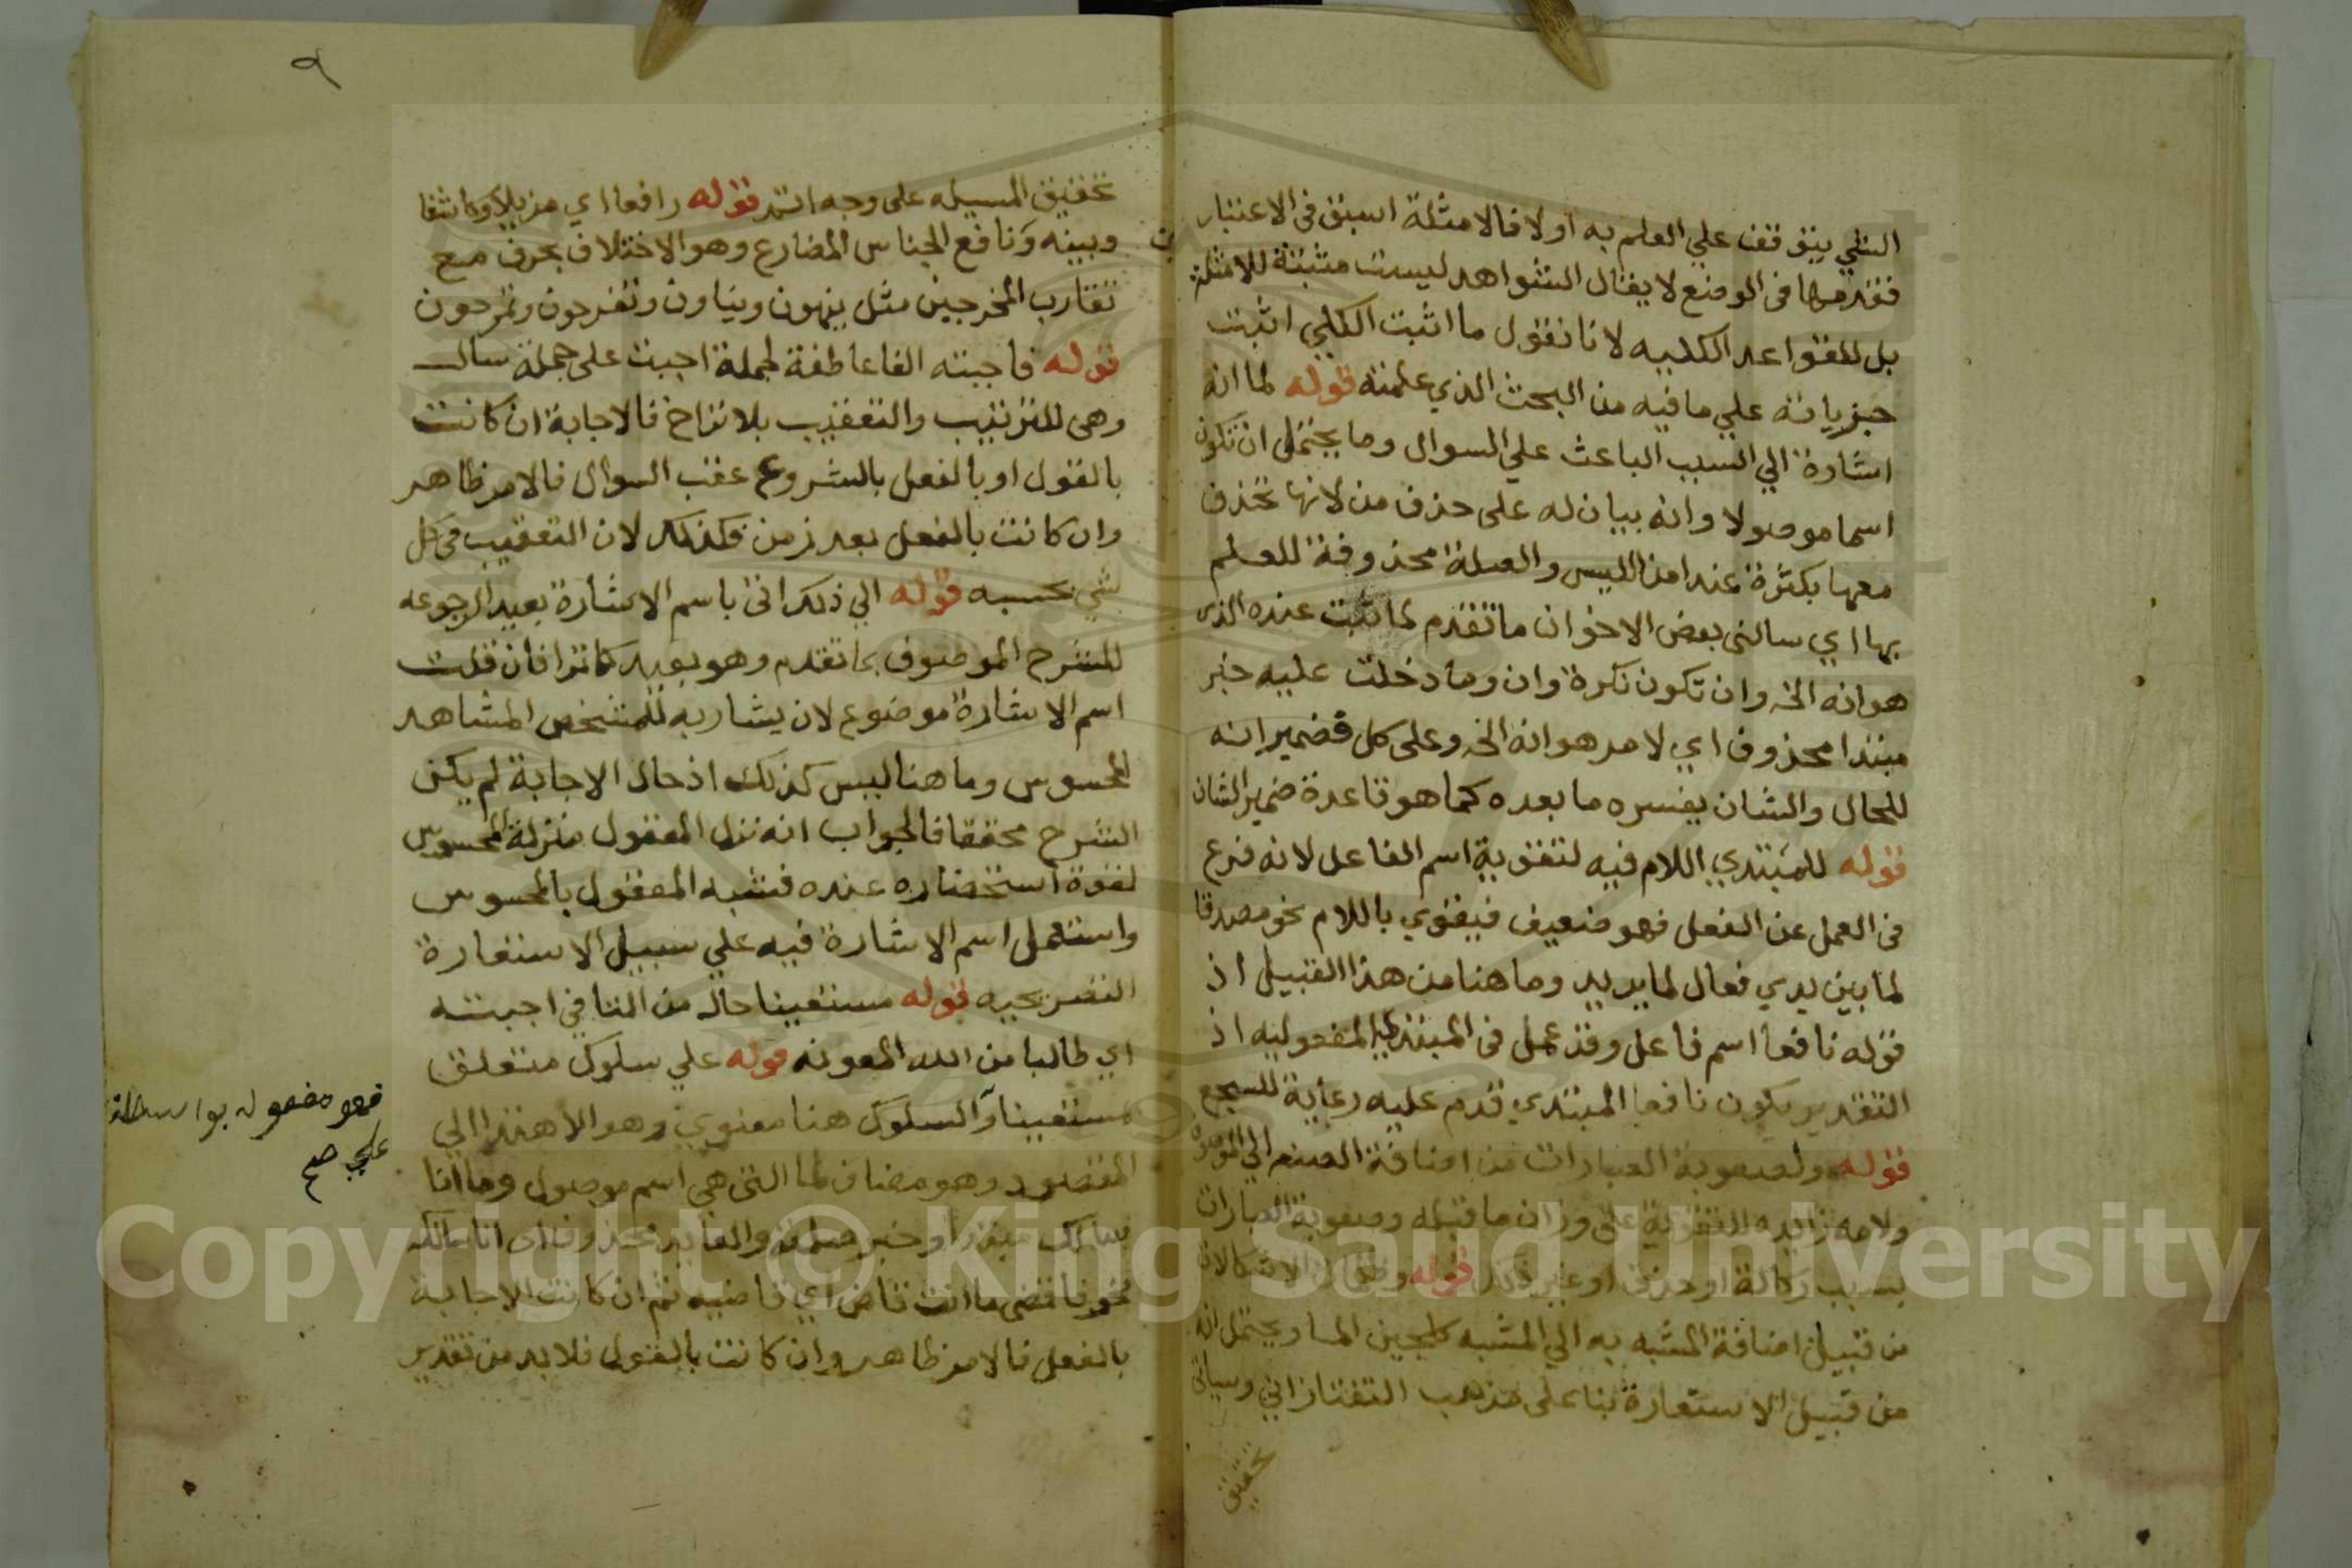 الشي يتوقف علي العلم به اولا فالامثلة اسبق في الاعتبار
فقدمها في الوضع لا يقال الشواهد ليست مثبتة للامثلة
بل للقواعد الكليه لانا نقول ما اثبت الكلي اثبت
جزياته علي ما فيه من البحث الذي علمته قوله لما انه
اشارة الي السبب الباعث علي السوال وما يحتمل ان تكون
اسما موصولا وانه بيان له على حذف من لانها تحذف
معها بكثرة عند امن اللبس والصلة محذوفة للعلم
بها اي سالني بعض الاخوان ما تقدم لما ثبت عنده الذي
هو انه الخ وان تكون نكرة وان وما دخلت عليه خبر
مبتدا محذوف اي لامر هو انه الخ وعلى كل فضمير انه
للحال والشان يفسره ما بعده كما هو قاعدة ضمير الشان
قوله للمبتدي اللام فيه لتقوية اسم الفاعل لانه فرع
في العمل عن الفعل فهو ضعيف فيقوي باللام نحو مصدقا
لما بين يدي فعال لما يريد وما هنا من هذا القبيل اذ
قوله نافعا اسم فاعل وقد عمل في المبتدي المفعوليه اذ
التقدير يكون نافعا المبتدي قدم عليه رعاية للسجع
قوله ولصعوبة العبارات من اضافة الصفه الي الموصوف
ولامه زايده للتقوية على وزان ما قبله وصعوبة العبارات
بسبب ركاكة او حذف او غير ذلك قوله وظلام الاشكالات
من قبيل اضافة المشبه به الي المشبه كلجين الما ويحتمل انه
من قبيل الاستعارة بنا على مذهب التفتازاني وسياتي
تحقيق
٩
تحقيق المسيله على وجه اتم قوله رافعا اي مزيلا وكاشفا
وبينه ونافع الجناس المضارع وهو الاختلاف بحرف مع
تقارب المخرجين مثل ينهون ويناون وتفرحون وتمرحون
قوله فاجبته الفا عاطفة لجملة اجبت على جملة سال
وهى للترتيب والتعقيب بلا تراخ فالاجابة ان كانت
بالقول او بالفعل بالشروع عقب السوال فالامر ظاهر
وان كانت بالفعل بعد زمن فكذلك لان التعقيب في كل
شي بحسبه قوله الي ذلك اتى باسم الاشارة بعيد الرجوعه
للشرح الموصوف بما تقدم وهو بعيد كما ترا فان قلت
اسم الاشارة موضوع لان يشار به للمشخص المشاهد
المحسوس وما هنا ليس كذلك اذ حال الاجابة لم يكن
الشرح محققا فالجواب انه نزل المعقول منزلة المحسوس
لقوة استحضاره عنده فشبه المعقول بالمحسوس
واستعمل اسم الاشارة فيه علي سبيل الاستعارة
التصريحيه قوله مستعينا حال من التا في اجبته
اي طالبا من الله المعونه قوله علي سلوك متعلق
بمستعينا والسلوك هنا معنوي وهو الاهتدا الي
المقصود وهو مضاف لما التي هي اسم موصول وما انا
سالك مبتدا وخبر صلته والعايد محذوف اي انا سالكه
نحو فاقض ما انت قاض اي قاضيه ثم ان كانت الاجابة
بالفعل فالامر ظاهر وان كانت بالقول فلا بد من تقدير
فهو مفعوله بواسطة
علي صح
Copyright © King Saud University